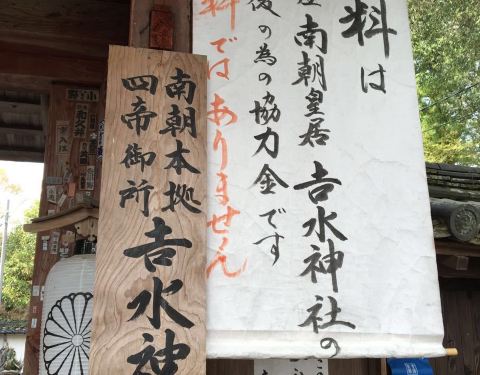 料は
産 南朝皇居 吉水神社の
後の為の協力金です
料ではありません
南朝本拠
四帝御所
吉水神